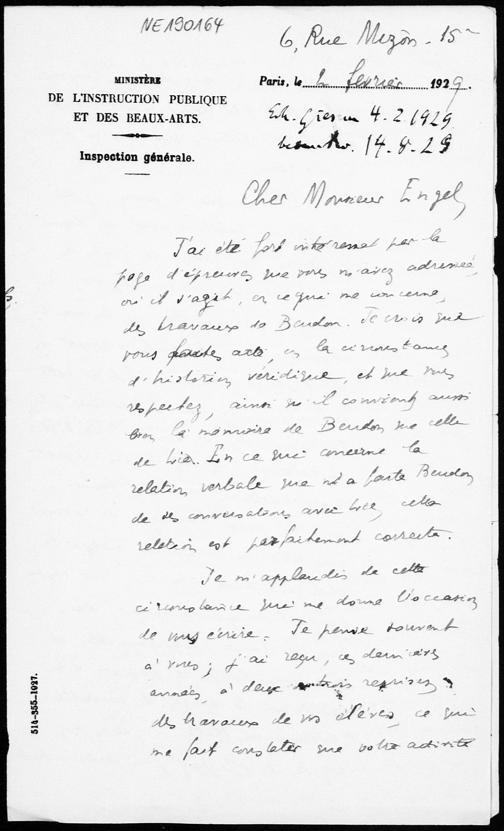 NE190164
6, Rue Mizon - 15e
MINISTÈRE
DE L'INSTRUCTION PUBLIQUE
ET DES BEAUX-ARTS.
Inspection générale.
Paris, le 2 février 1929.
4.2.1929
14.8.29
Cher Monsieur Engel,
J'ai été fort intéressé par la
page d'épreuves que vous m'avez adressée,
où il s'agit, en ce qui me concerne,
des travaux de Beudon. Je crois que
vous faites acte, en la circonstance
d'historien véridique, et que vous
respectez, ainsi qu'il convient, aussi
bien la mémoire de Beudon que celle
de Lie. En ce qui concerne la
relation verbale que m'a faite Beudon
de ses conversations avec Lie, cette
relation est parfaitement correcte.
Je m'applaudis de cette
circonstance qui me donne l'occasion
de vous écrire. Je pense souvent
à vous ; j'ai reçu, ces dernières
années, à deux reprises,
des travaux de vos élèves, ce qui
me fait constater que votre activité
514-355-1927.